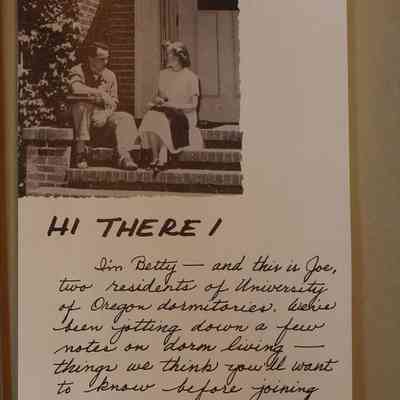 HI THERE!
I'm Betty — and this is Joe,
two residents of University
of Oregon dormitories. We've
been jotting down a few
notes on dorm living —
things we think you'll want
to know before joining